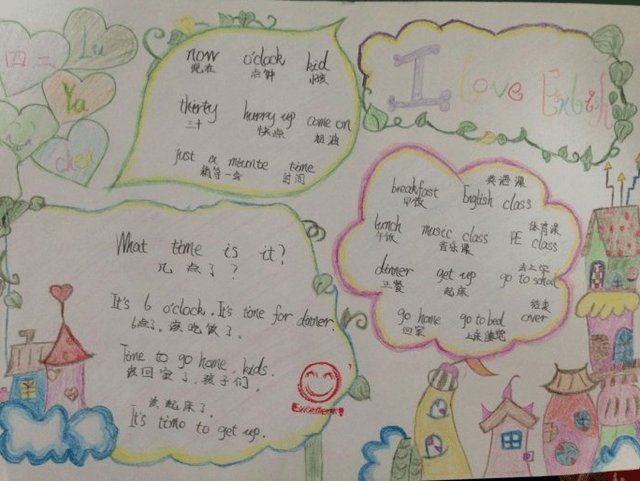 四二
Lu
Yu
chen
now o'clock kid
现在 点钟 小孩
thirty hurry up come on
三十 快点
just a mounte time
稍等一会 时间
I Love English
英语课
breakfast English class
早饭 体育课
lunch music class PE class
午饭 音乐课 去上学
dinner get up go to school
正餐 起床 结束
go home go to bed over
回家 上床睡觉
What time is it?
几点了?
It's 6 o'clock. It's time for dinner.
6点了。该吃饭了。
Time to go home, kids.
该回家了,孩子们。
该起床了。
It's time to get up.
Excellent!